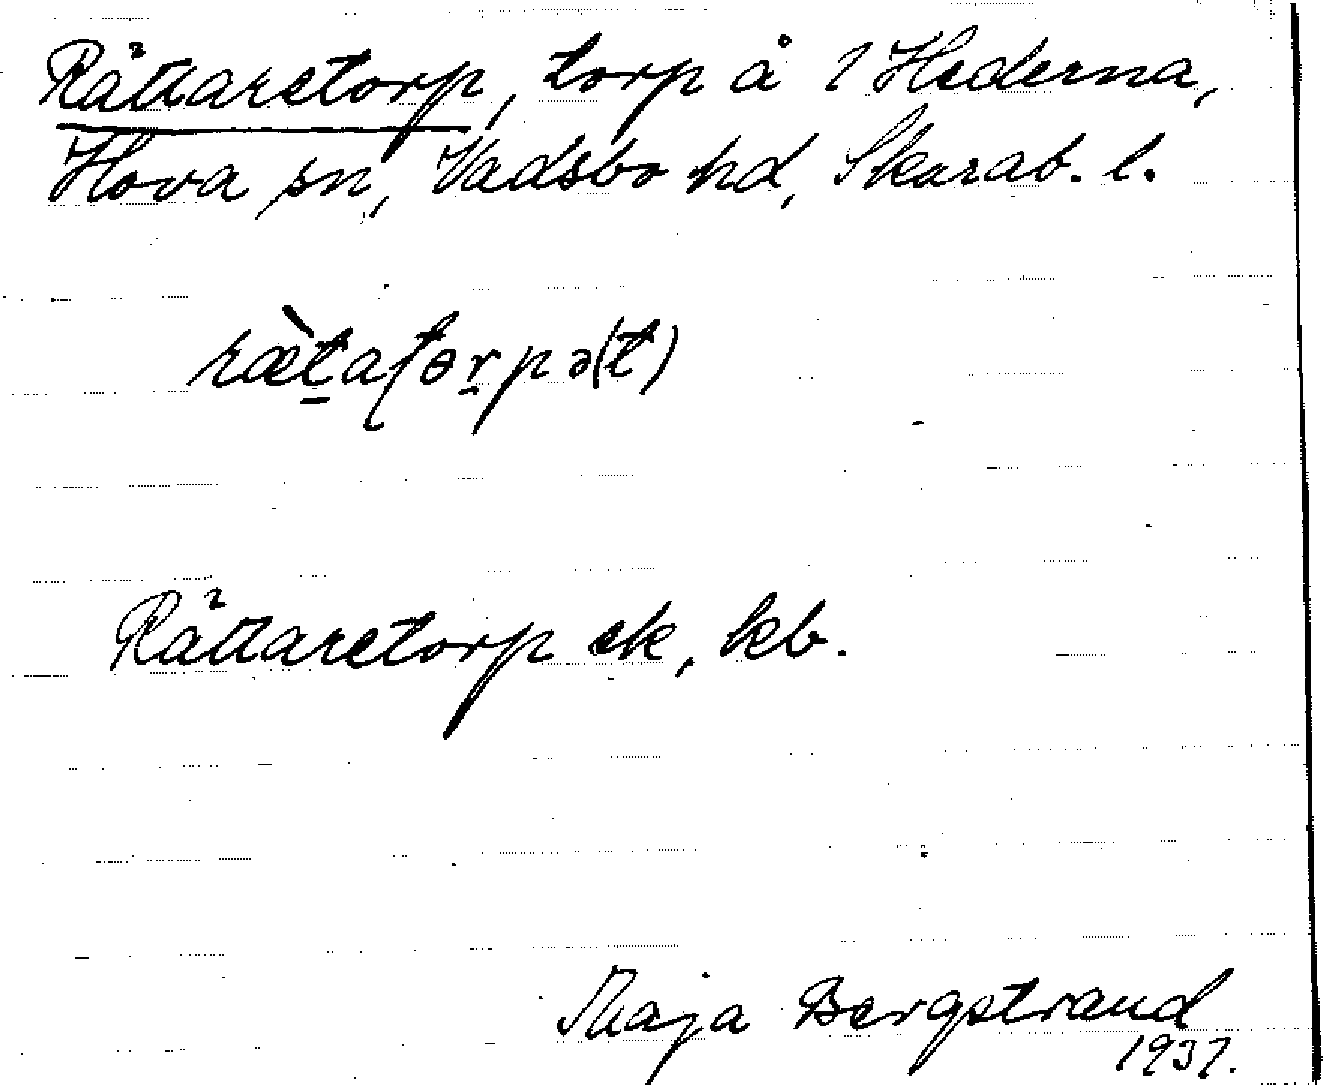 Rättaretorp, torp å 1 Hederna,
Hova sn, Vadsbo hd, Skarab. l.
ræ̀t̠aʃɵr̠pə(t)
Rättaretorp ek, kb.
Maja Bergstrand
1937.